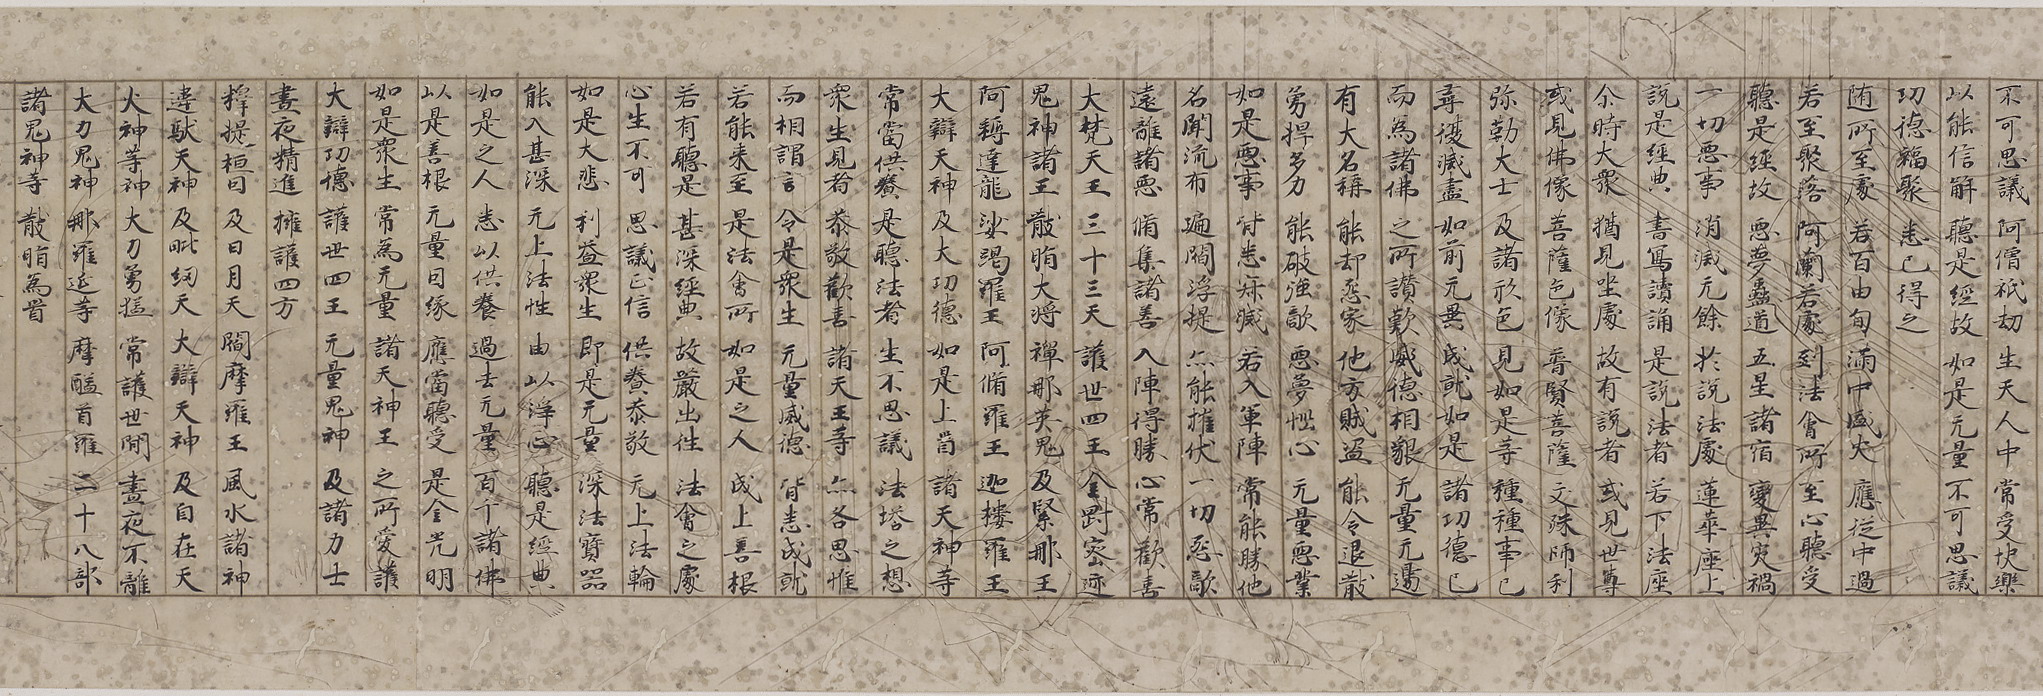 不可思議 阿僧祇劫 生天人中 常受快樂
以能信解 聽是經故 如是无量 不可思議
功德福聚 悉已得之
随所至處 若百由旬 滿中盛火 應從中過
若至聚落 阿蘭若處 到法會所 至心聽受
聽是經故 惡夢蠱道 五星諸宿 變異灾禍
一切惡事 消滅无餘 於說法處 蓮華座上
說是經典 書寫讀誦 是說法者 若下法座
尒時大衆 猶見坐處 故有說者 或見世尊
或見佛像 菩薩色像 普賢菩薩 文殊師利
弥勒大士 及諸形色 見如是等 種種事已
尋復滅盡 如前无異 成就如是 諸功德已
而為諸佛 之所讚歎 威德相貌 无量无邊
有大名稱 能却惡家 他方賊盜 能令退散
勇捍多力 能破強敵 惡夢惱心 无量惡業
如是惡事 皆悉寂滅 若入軍陣 常能勝他
名聞流布 遍閻浮提 亦能摧伏 一切惡敵
遠離諸惡 脩集諸善 入陣得勝 心常歡喜
大梵天王 三十三天 護世四王 金剛密迹
鬼神諸王 散脂大將 禪那英鬼 及緊那王
阿耨達龍 娑竭羅王 阿脩羅王 迦樓羅王
大辯天神 及大功德 如是上首 諸天神等
常當供養 是聽法者 生不思議 法塔之想
衆生見者 恭敬歡喜 諸天王等 亦各思惟
而相謂言 令是衆生 无量威德 皆悉成就
若能來至 是法會所 如是之人 成上善根
若有聽是 甚深經典 故嚴出往 法會之處
心生不可 思議正信 供養恭敬 无上法輪
如是大悲 利益衆生 即是无量 深法寶器
能入甚深 无上法性 由以淨心 聽是經典
如是之人 悉以供養 過去无量 百千諸佛
以是善根 无量因緣 應當聽受 是金光明
如是衆生 常為无量 諸天神王 之所愛護
大辯功德 護世四王 无量鬼神 及諸力士
晝夜精進 擁護四方
釋提桓因 及日月天 閻摩羅王 風水諸神
違馱天神 及毗紐天 大辯天神 及自在天
火神等神 大力勇猛 常護世間 晝夜不離
大力鬼神 那羅延等 摩醯首羅 二十八部
諸鬼神等 散脂為首